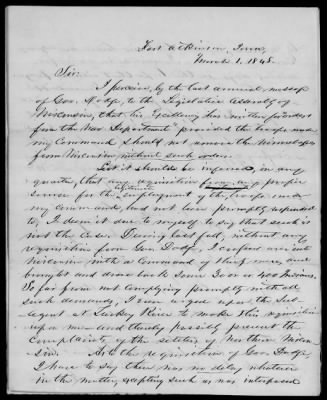 Fort Atkinson, Iowa,
March 1. 1848.
Sir:
I perceive, by the last annual message
of Gov. Dodge, to the Legislative Assembly of
Wisconsin, that his Excellency has written
from the War Department provided the troops under
my Command should not remove the Winnebagoes
from Wisconsin without such orders.
Lest it should be inferred in any
quarter, that any requisition from any proper
source for the legitimate employment of the troops under
my command, had not been promptly responded
to, I deem it due to myself to say that such is
not the case. During last fall, without any
requisition from Gov. Dodge, I
Wisconsin with a command of thirty men, and
brought and drove back some 300 or 400 Indians.
So far from not complying promptly with all
such demands, I even urged upon the Sub-
agent at Turkey River to make this requisition
upon me and thereby possibly prevent the
complaints of the settlers of Northern Wiscon-
sin. As to the requisition of Gov. Dodge,
I have to say there was no delay whatever
in the matter, excepting such as was interposed